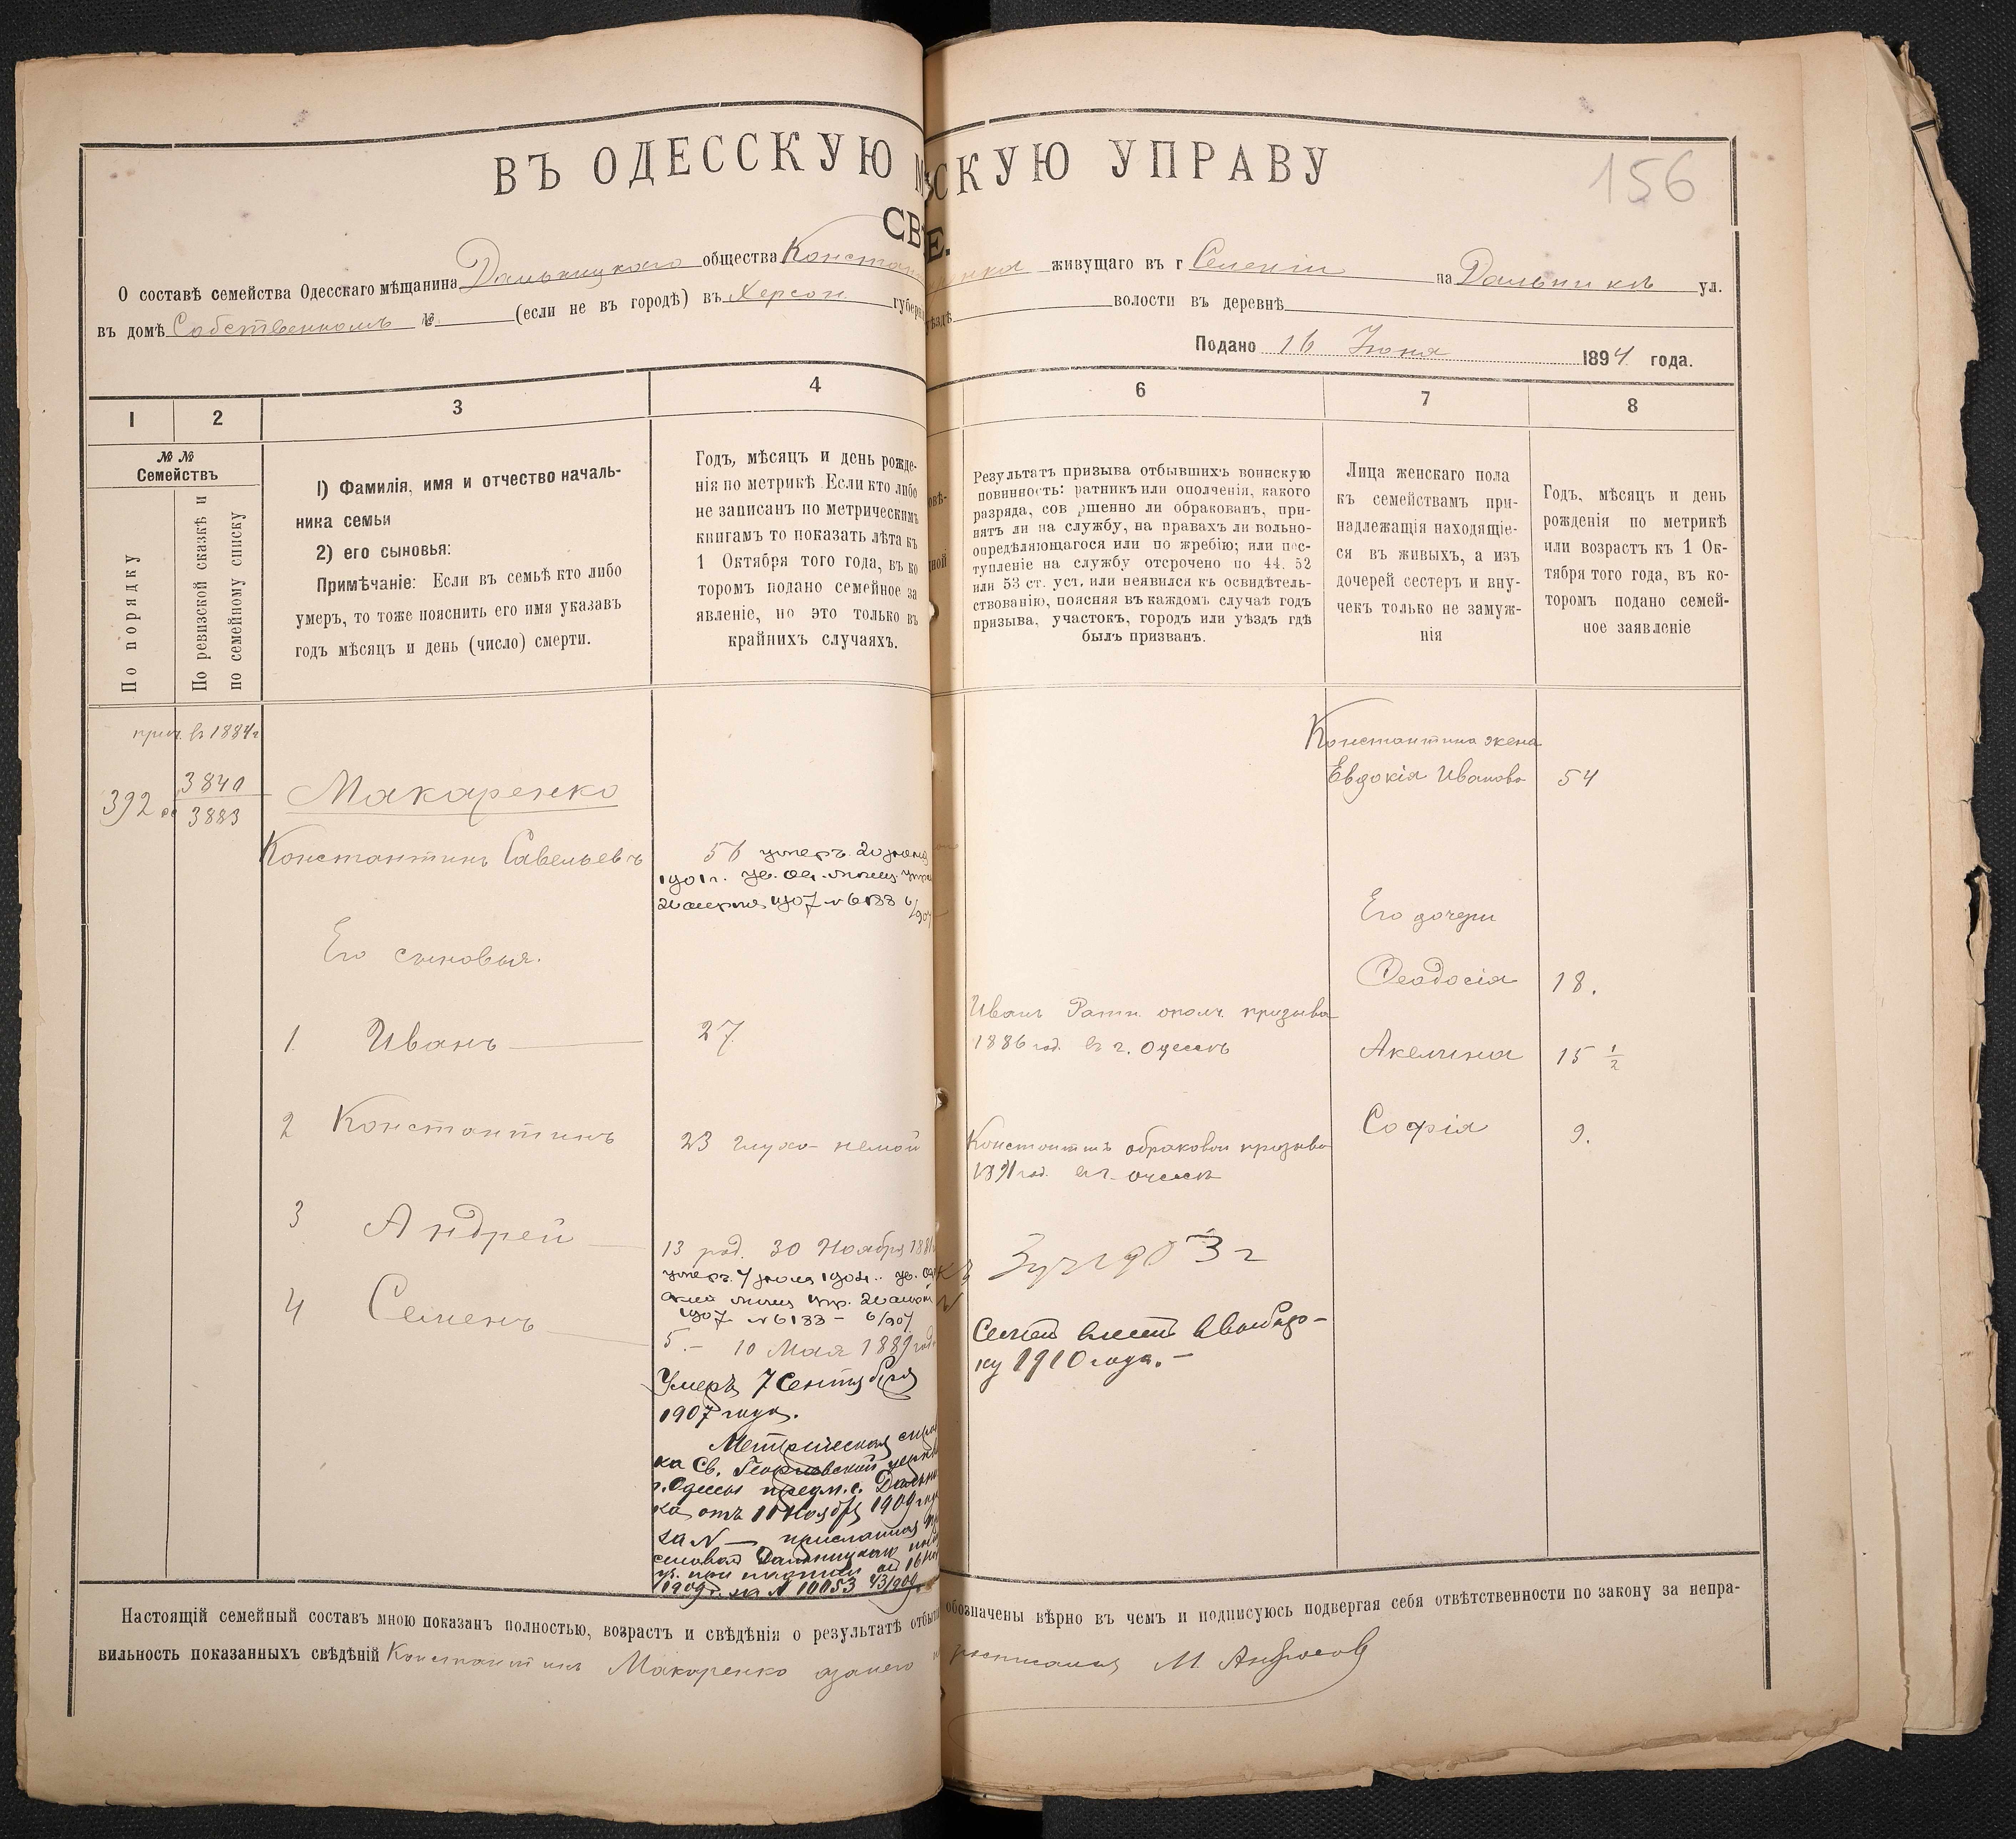 ВЪ ОДЕССКУЮ М
ЬСКУЮ УПРАВУ
156
СВ
Е.
О составѣ семейства Одесскаго мѣщанина Дальницкаго общества Констан
енка живущаго въ г Селеніи на Дальникѣ ул.
въ домѣ Собственномъ № (если не въ городѣ) въ Херсон. губерн
уѣздѣ волости въ деревнѣ
Подано 16 Іюня 1894 года.
1
2
3
4
6
7
8
№ №
Семействъ
По порядку
По ревизской сказкѣ и
по семейному списку
1) Фамилія, имя и отчество началь-
ника семьи
2) его сыновья:
Примѣчаніе: Если въ семьѣ кто либо
умеръ, то тоже пояснить его имя указавъ
годъ мѣсяцъ и день (число) смерти.
Годъ, мѣсяцъ и день рожде-
нія по метрикѣ Если кто либо
не записанъ по метрическимъ
книгамъ то показать лѣта къ
1 Октября того года, въ ко
торомъ подано семейное за
явленіе, но это только въ
крайнихъ случаяхъ.
Результатъ призыва отбывшихъ воинскую
повинность: ратникъ или ополченія, какого
разряда, сов ршенно ли обракованъ, при-
нятъ ли на службу, на правахъ ли вольно-
опредѣляющагося или по жребію; или пос-
тупленіе на службу отсрочено по 44. 52
или 53 ст. уст, или неявился къ освидѣтель-
ствованію, поясняя въ каждомъ случаѣ годъ
призыва, участокъ, городъ или уѣздъ гдѣ
былъ призванъ.
Лица женскаго пола
къ семействамъ при-
надлежащія находящіе-
ся въ живыхъ, а изъ
дочерей сестеръ и вну-
чекъ только не замуж-
нія
Годъ, мѣсяцъ и день
рожденія по метрикѣ
или возрастъ къ 1 Ок-
тября того года, въ ко-
торомъ подано семей-
ное заявленіе
прич. въ 1884 г
Константина жена
3840
Евдокія Иванова 54
392
3883
Макаренко
Константинъ Савельевъ
56 умеръ 20 іюня
1901 г. ув. од. мѣщ. упр
1907 № 6133 6/907
Его дочери
Его сыновья.
Феодосія 18.
Иванъ Ратн. ополч. призыва
1 Иванъ 27
1886 год. въ г. Одессѣ
Акелина 15 1/2
2 Константинъ 23 глухо-немой
Константинъ обракован призыва
1891 год. въ г. Одессѣ
Софія 9.
3 Андрей
13 род. 30 Ноября 188
умеръ 4 іюля 1904 г. ув. од
1907 № 6133 - 6/907
1903 г
4 Семенъ
5.- 10 Мая 1889 год.
Семенъ внесенъ въ выбро-
ку 1910 года.-
Умеръ 7 Сентября
1907 года.
Метрическая спра
ка Св. Георгіевской церкви
г. Одессы предм. с. Дальни
ка отъ 11 Ноября 1909 года
за № — присланная
Дальницкаго
1909 г. за № 10053 43/909.
Настоящій семейный составъ мною показанъ полностью, возрастъ и свѣдѣнія о результатѣ отбыт
обозначены вѣрно въ чемъ и подписуюсь подвергая себя отвѣтственности по закону за непра-
вильность показанныхъ свѣдѣній Константинъ Макаренко азанего
росписался М. Андросов